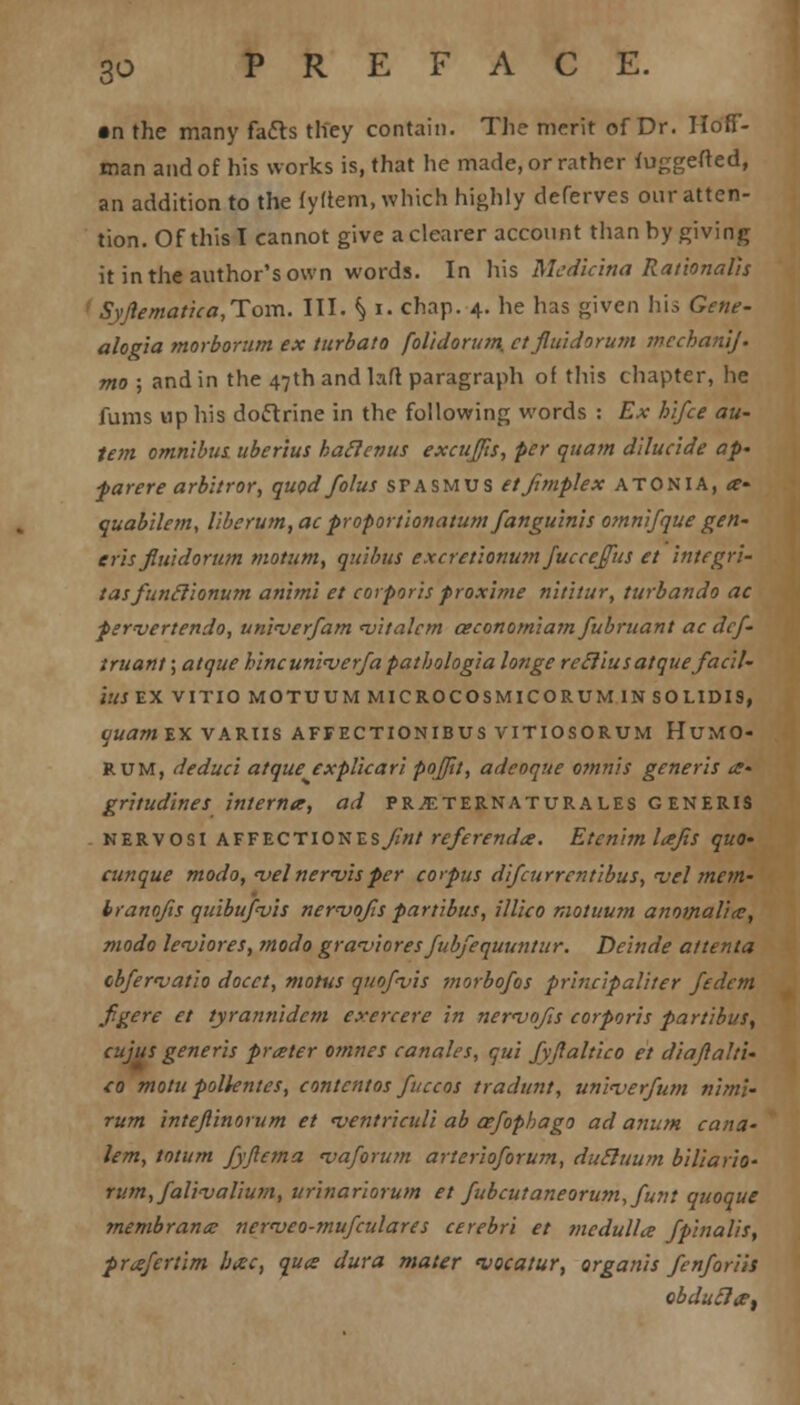 30 PREFACE.
on the many facts they contain. The merit of Dr. Hoff-
man and of his works is, that he made, or rather ſuggeſted,
an addition to the ſyſtem, which highly deſerves our atten-
tion. Of this I cannot give a clearer account than by giving
it in the author's own words. In his Medicina Rationalis
Syſtematica, Tom. III. § 1. chap. 4. he has given his Gene-
alogia morborum ex turbato ſolidorum et fluidorum mechaniſ-
mo ; and in the 47th and laſt paragraph of this chapter, he
ſums up his doctrine in the following words : Ex hiſce au-
tem omnibus uberius hactenus excuſſis, per quam dilucide ap-
parere arbitror, quod ſolus SPASMUS et ſimplex ATONIA, æ-
quabilem, liberum, ac proportionatum ſanguinis omniſque gen-
eris fluidorum motum, quibus excretionum ſucceſſus et integri-
tas functionum animi et corporis proxime nititur, turbando ac
pervertendo, univerſam vitalem œconomiam ſubruant ac deſ-
truant; atque hinc univerſa pathologia longe rectius atque facil-
ius EX VITIO MOTUUM MICROCOSMICORUM IN SOLIDIS,
quam EX VARIIS AFFECTIONIBUS VITIOSORUM HUMO-
RUM, deduci atque explicari poſſit, adeoque omnis generis æ-
gritudines internæ, ad PRÆTERNATURALES GENERIS
NERVOSI AFFECTIONES ſint referendæ. Etenim læſis quo-
cunque modo, vel nervis per corpus diſcurrentibus, vel mem-
branoſis quibuſvis nervoſis partibus, illico motuum anomaliæ,
modo leviores, modo graviores ſubſequuntur. Deinde attenta
obſervatio docet, motus quoſvis morboſos principaliter ſedem
figere et tyrannidem exercere in nervoſis corporis partibus,
cujus generis præter omnes canales, qui ſyſtaltico et diaſtalti-
co motu pollentes, contentos ſuccos tradunt, univerſum nimi-
rum inteſtinorum et ventriculi ab œſophago ad anum cana-
lem, totum ſyſtema vaſorum arterioſorum, ductuum biliario-
rum, ſalivalium, urinariorum et ſubcutaneorum, ſunt quoque
membranæ nerveo-muſculares cerebri et medullæ ſpinalis,
præſertim hæc, quæ dura mater vocatur, organis ſenſoriis
obductæ,